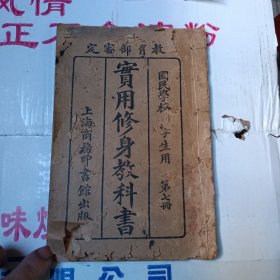 教育部審定
國民學校 學生用 第七冊
實用修身教科書
上海商務印書館出版
正
味
公司